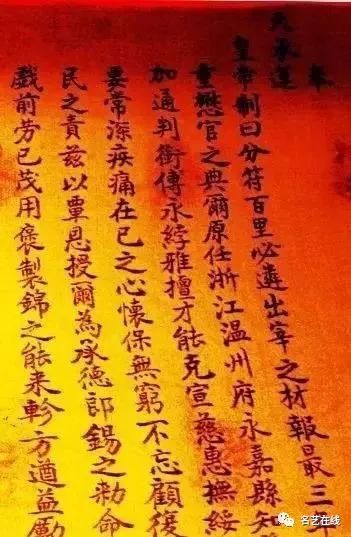 奉
天承運
皇帝制曰分符百里必遴出宰之材報最三年
重懋官之典爾原任浙江温州府永嘉縣知
加通判銜傅永綍雅擅才能克宣慈惠撫綏
要常深疾痛在已之心懷保無窮不忘顧復
民之責兹以覃恩授爾為承德郎錫之勅命
戲前芳已茂用褒製錦之能来軫方遒益勵
名艺在线